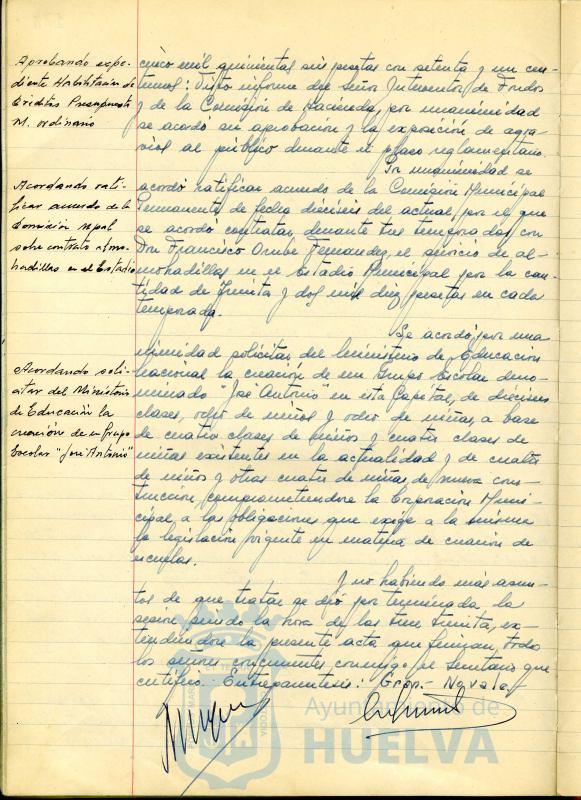 Aprobando expe-
diente Habilitación de
Créditos Presupuesto
M. ordinario
cinco mil quinientas seis pesetas con setenta y un cen-
timos: Visto informe del Señor Interventor de Fondos
y de la Comisión de Hacienda, por unanimidad
se acordó su aprobación y la exposición de agra-
vios al público durante el plazo reglamentario.
Acordando rati-
ficar acuerdo de la
Comisión mpal
sobre contrato almo-
hadillas en el Estadio
Por unanimidad se
acordó ratificar acuerdo de la Comisión Municipal
Permanente de fecha dieciseis del actual, por el que
se acordó contratar, durante tres temporadas, con
Don Francisco Fernandez, el servicio de al-
mohadillas en el Estadio Municipal por la can-
tidad de Treinta y dos mil diez pesetas en cada
temporada.
Acordando soli-
citar del Ministerio
de Educación la
creación de un Grupo
Escolar "José Antonio"
Se acordó, por una-
nimidad, solicitar del Ministerio de Educación
Nacional la creación de un Grupo Escolar deno-
minado "José Antonio" en esta Capital, de dieciseis
clases, ocho de niños y ocho de niñas, a base
de cuatro clases de niños y cuatro clases de
niñas existentes en la actualidad y de cuatro
de niños y otras cuatro de niñas, de nueva cons-
trucción, comprometiendose la Corporación Muni-
cipal a las obligaciones que exige a la misma
la legislación vigente en materia de creación de
escuelas.
Y no habiendo más asun-
tos de que tratar se dió por terminada la
sesión, siendo la hora de las trece treinta, ex-
tendiendose la presente acta que firman todos
los señores concurrentes, conmigo, el Secretario que
certifico. Entreparentesis:
Ayuntamiento de
HUELVA